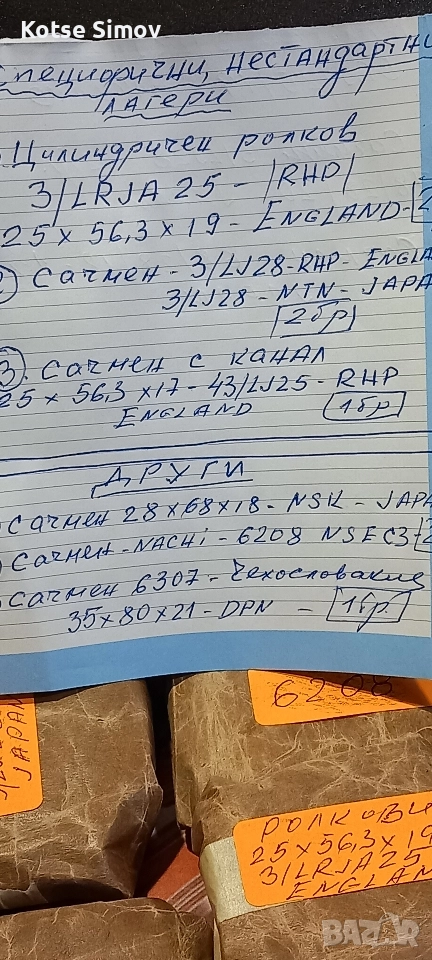 Kotse Simov
Специфични, нестандартни
лагери
Цилиндричен ролков
3/LRJA 25 - |RHP|
25 x 56,3 x 19 - ENGLAND - 2
2) Сачмен - 3/LJ28 - RHP - ENGLA
3/LJ28 - NTN - JAPA
2бр
3. Сачмен с канал
25 x 56,3 x 17 - 43/LJ25 - RHP
ENGLAND 1бр
ДРУГИ
Сачмен 28x68x18 - NSK - JAPA
Сачмен - NACHi - 6208 NSEC3 - 2
Сачмен 6307 - Чехословакия
35x80x21 - DPN - 1бр.
6208
JAPAN
РОЛКОВИ
25x56,3x19
3/LRJA25
ENGLAN
BAZAR